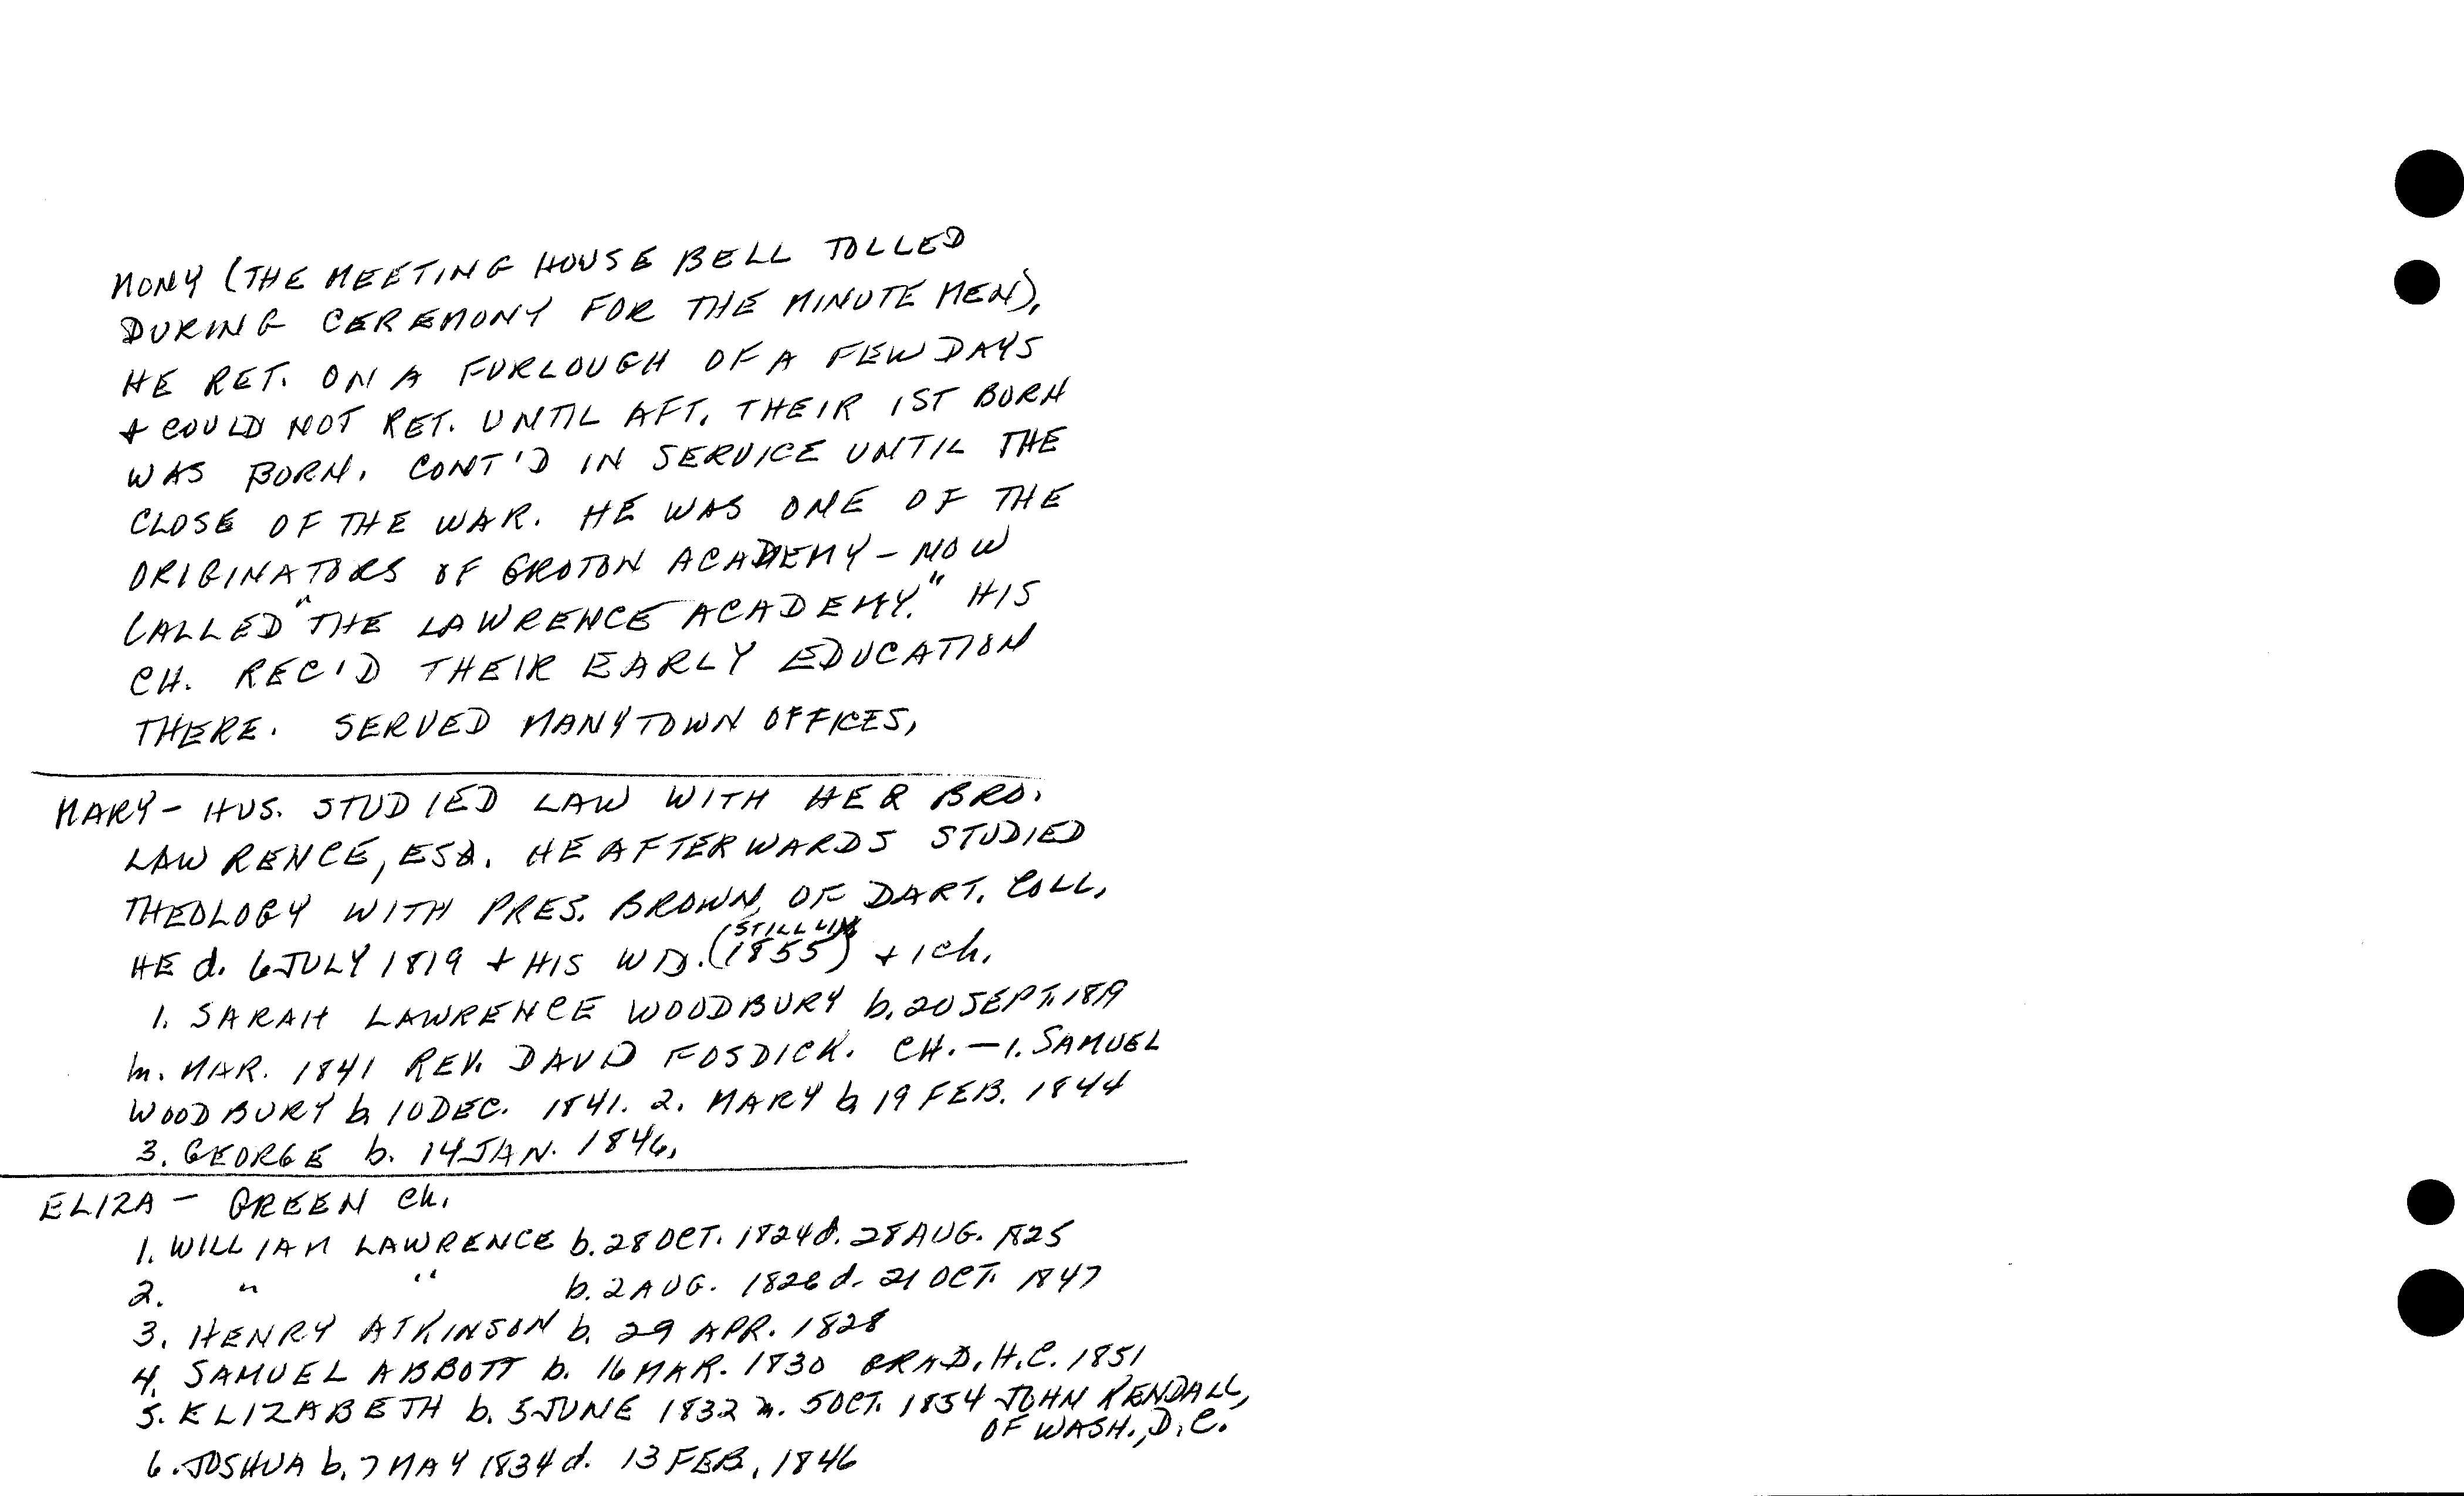 MONY (THE MEETING HOUSE BELL TOLLED
DURING CEREMONY FOR THE MINUTE MEN),
HE RET. ON A FURLOUGH OF A FEW DAYS
& COULD NOT RET. UNTIL AFT. THEIR 1ST BORN
WAS BORN. CONT'D IN SERVICE UNTIL THE
CLOSE OF THE WAR. HE WAS ONE OF THE
ORIGINATORS OF GROTON ACADEMY - NOW
CALLED "THE LAWRENCE ACADEMY." HIS
CH. REC'D THEIR EARLY EDUCATION
THERE. SERVED MANY TOWN OFFICES,
MARY - HUS. STUDIED LAW WITH HER BRO.
LAWRENCE, ESQ. HE AFTERWARDS STUDIED
THEOLOGY WITH PRES. BROWN, OF DART. COLL,
HE d. 6 JULY 1819 & HIS WID. (STILL LIV 1855) & 1 ch.
1. SARAH LAWRENCE WOODBURY b. 20 SEPT. 1819
m. MAR. 1841 REV. DAVID FOSDICK. CH. - 1. SAMUEL
WOODBURY b. 10 DEC. 1841. 2. MARY b. 19 FEB. 1844
3. GEORGE b. 14 JAN. 1846,
ELIZA - GREEN ch.
1. WILLIAM LAWRENCE b. 28 OCT. 1824 d. 28 AUG. 1825
2. " " b. 2 AUG. 1826 d. 21 OCT. 1847
3. HENRY ATKINSON b. 29 APR. 1828
4. SAMUEL ABBOTT b. 16 MAR. 1830 GRAD. H.C. 1851
5. ELIZABETH b. 5 JUNE 1832 m. 5 OCT. 1854 JOHN KENDALL,
OF WASH., D.C.
6. JOSHUA b. 7 MAY 1834 d. 13 FEB. 1846